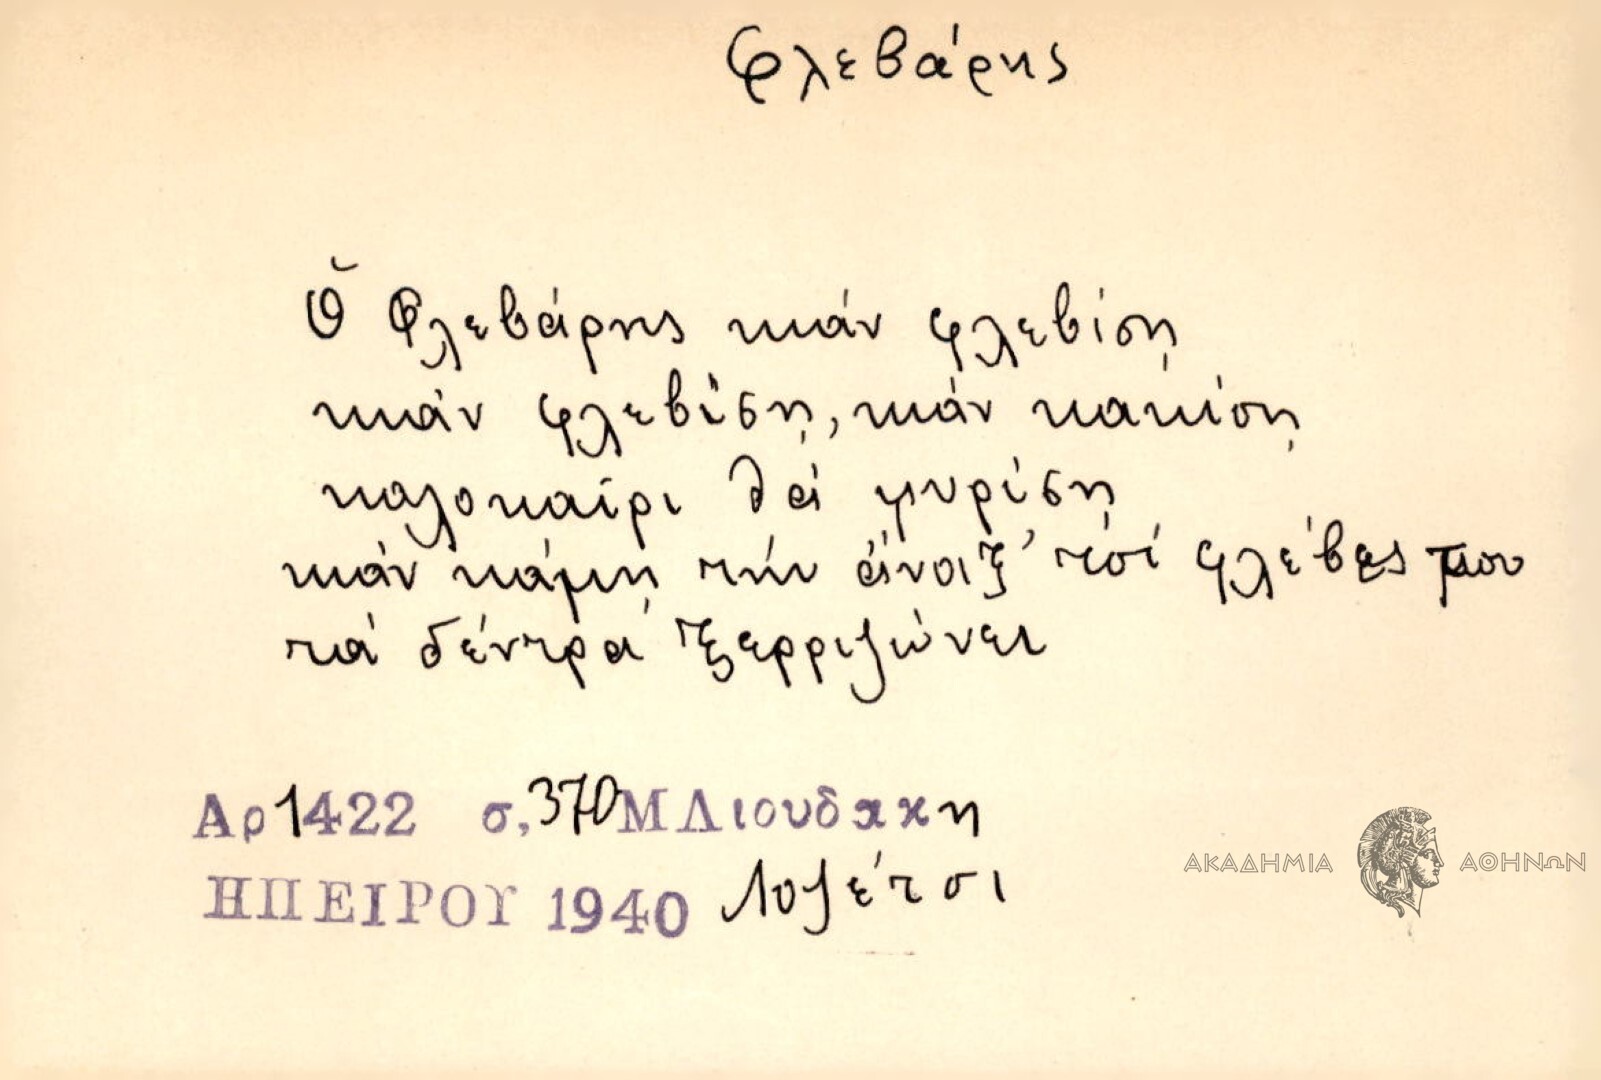 Φλεβάρης
Ὁ Φλεβάρης κιάν φλεβίση
κιάν φλεβίση, κιάν κακίση
καλοκαίρι θά γυρίση
κιάν κάμη τήν ἄνοιξ' τσί φλέβες του
τά δέντρα ξερριζώνει
Αρ 1422 σ. 370 Μ Λιουδακη
ΗΠΕΙΡΟΥ 1940 Λοζέτσι
ΑΚΑΔΗΜΙΑ ΑΘΗΝΩΝ